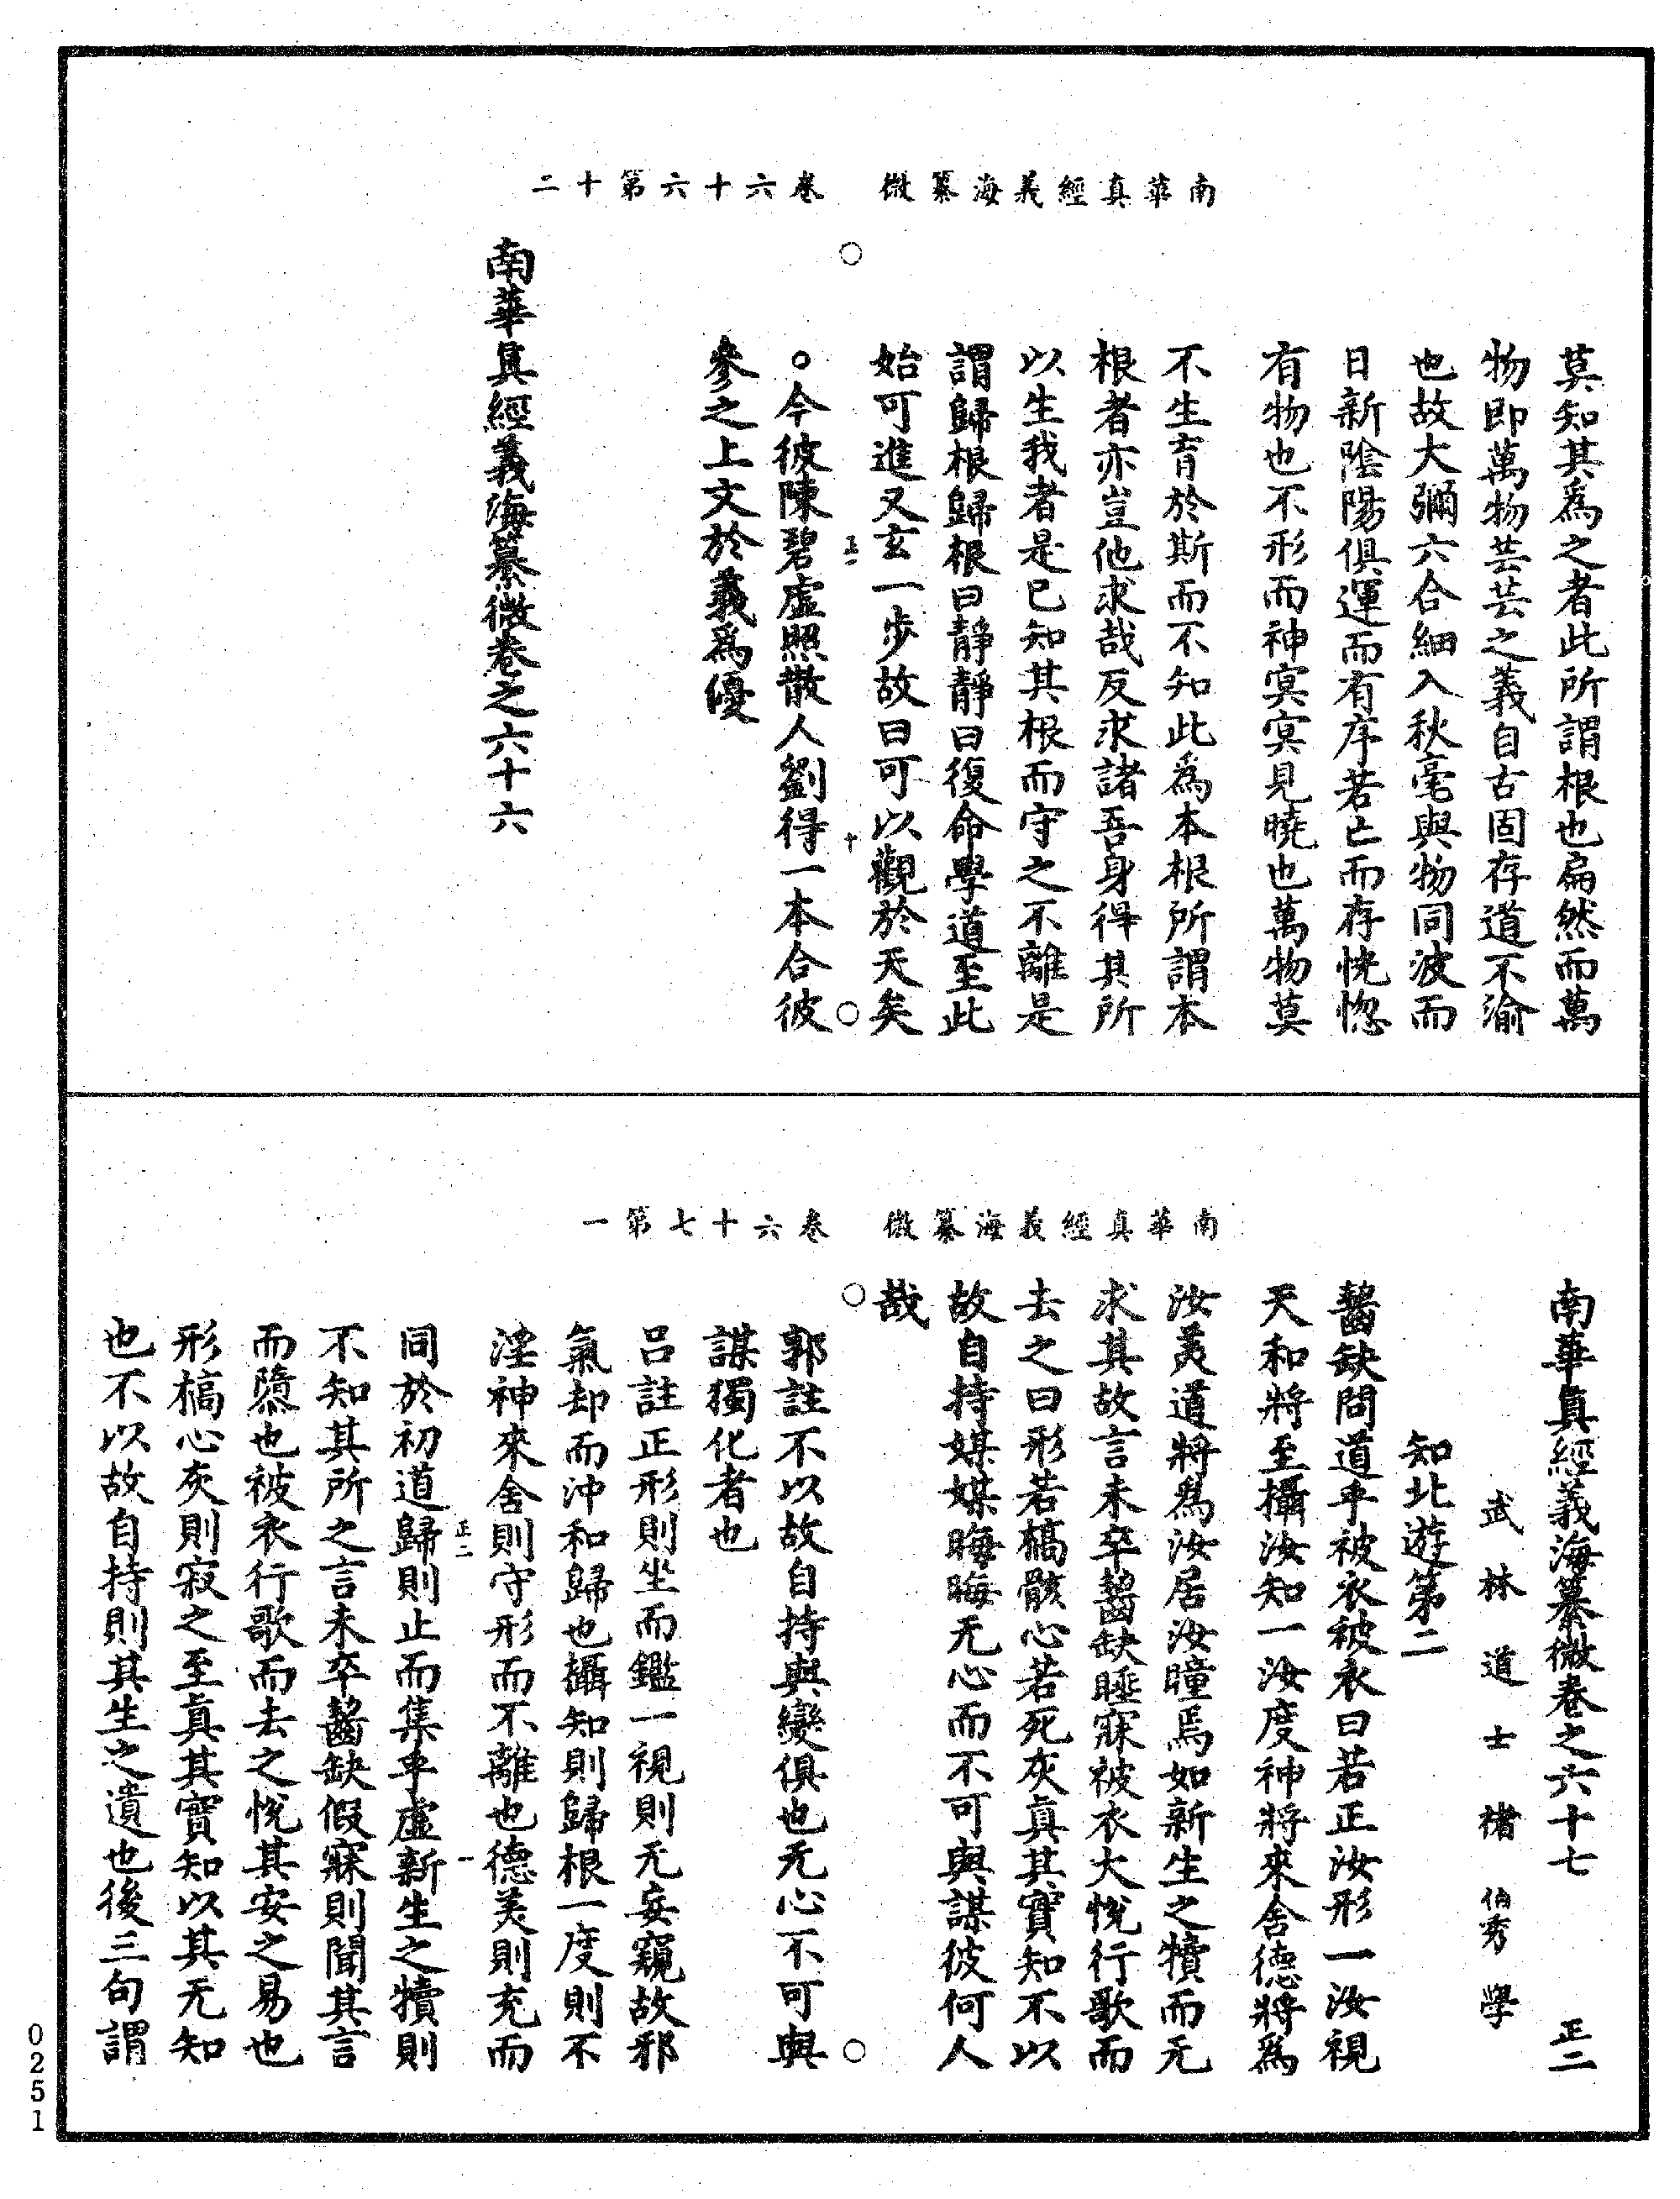 南華真經義海纂微　卷六十六第十二
莫知其為之者此所謂根也扁然而萬
物即萬物芸芸之義自古固存道不渝
也故大彌六合細入秋毫與物同波而
日新陰陽俱運而有序若亡而存恍惚
有物也不形而神冥冥見曉也萬物莫
不生育於斯而不知此為本根所謂本
根者亦豈他求哉反求諸吾身得其所
以生我者是已知其根而守之不離是
謂歸根歸根曰靜靜曰復命學道至此
始可進又玄一步故曰可以觀於天矣
○今彼陳碧虛照散人劉得一本合彼
參之上文於義為優
南華真經義海纂微卷之六十六
南華真經義海纂微　卷六十七第一
南華真經義海纂微卷之六十七　正二
武林道士褚伯秀學
知北遊第二
齧缺問道乎被衣被衣曰若正汝形一汝視
天和將至攝汝知一汝度神將來舍德將為
汝美道將為汝居汝瞳焉如新生之犢而无
求其故言未卒齧缺睡寐被衣大悅行歌而
去之曰形若槁骸心若死灰真其實知不以
故自持媒媒晦晦无心而不可與謀彼何人
哉
郭註不以故自持與變俱也无心不可與
謀獨化者也
呂註正形則坐而鑑一視則无妄窺故邪
氣却而沖和歸也攝知則歸根一度則不
淫神來舍則守形而不離也德美則充而
正二　一
同於初道歸則止而集乎虛新生之犢則
不知其所之言未卒齧缺假寐則聞其言
而隳也被衣行歌而去之悅其安之易也
形槁心灰則寂之至真其實知以其无知
也不以故自持則其生之遺也後三句謂
0251